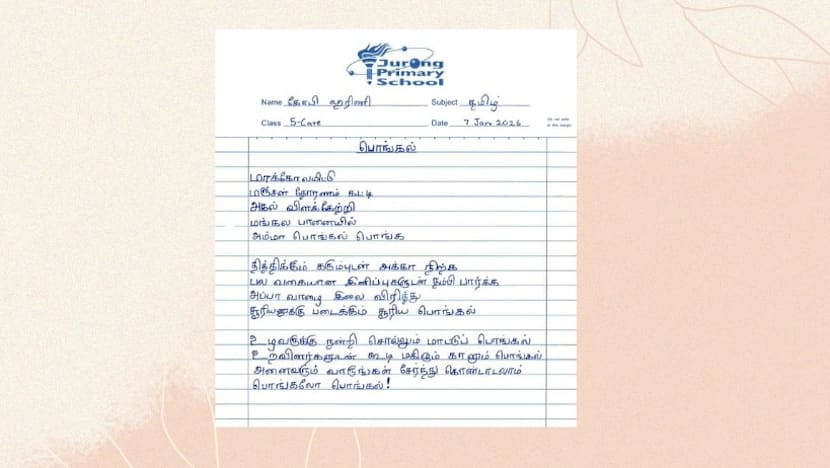 Jurong
Primary
School
Name கோபி ஹரிணி Subject தமிழ்
Class 5-Care Date 7 Jan 2026
Do not write
in this margin
பொங்கல்
மாக்கோலமிட்டு
மஞ்சள் தோரணம் கட்டி
அகல் விளக்கேற்றி
மங்கல பானையில்
அம்மா பொங்கல் பொங்க
தித்திக்கும் கரும்புடன் அக்கா நிற்க
பல வகையான இனிப்புகளுடன் தம்பி பார்க்க
அப்பா வாழை இலை விரித்து
சூரியனுக்கு படைக்கும் சூரிய பொங்கல்
உழவருக்கு நன்றி சொல்லும் மாட்டுப் பொங்கல்
உறவினர்களுடன் கூடி மகிழும் காணும் பொங்கல்
அனைவரும் வாருங்கள் சேர்ந்து கொண்டாடலாம்
பொங்கலோ பொங்கல்!